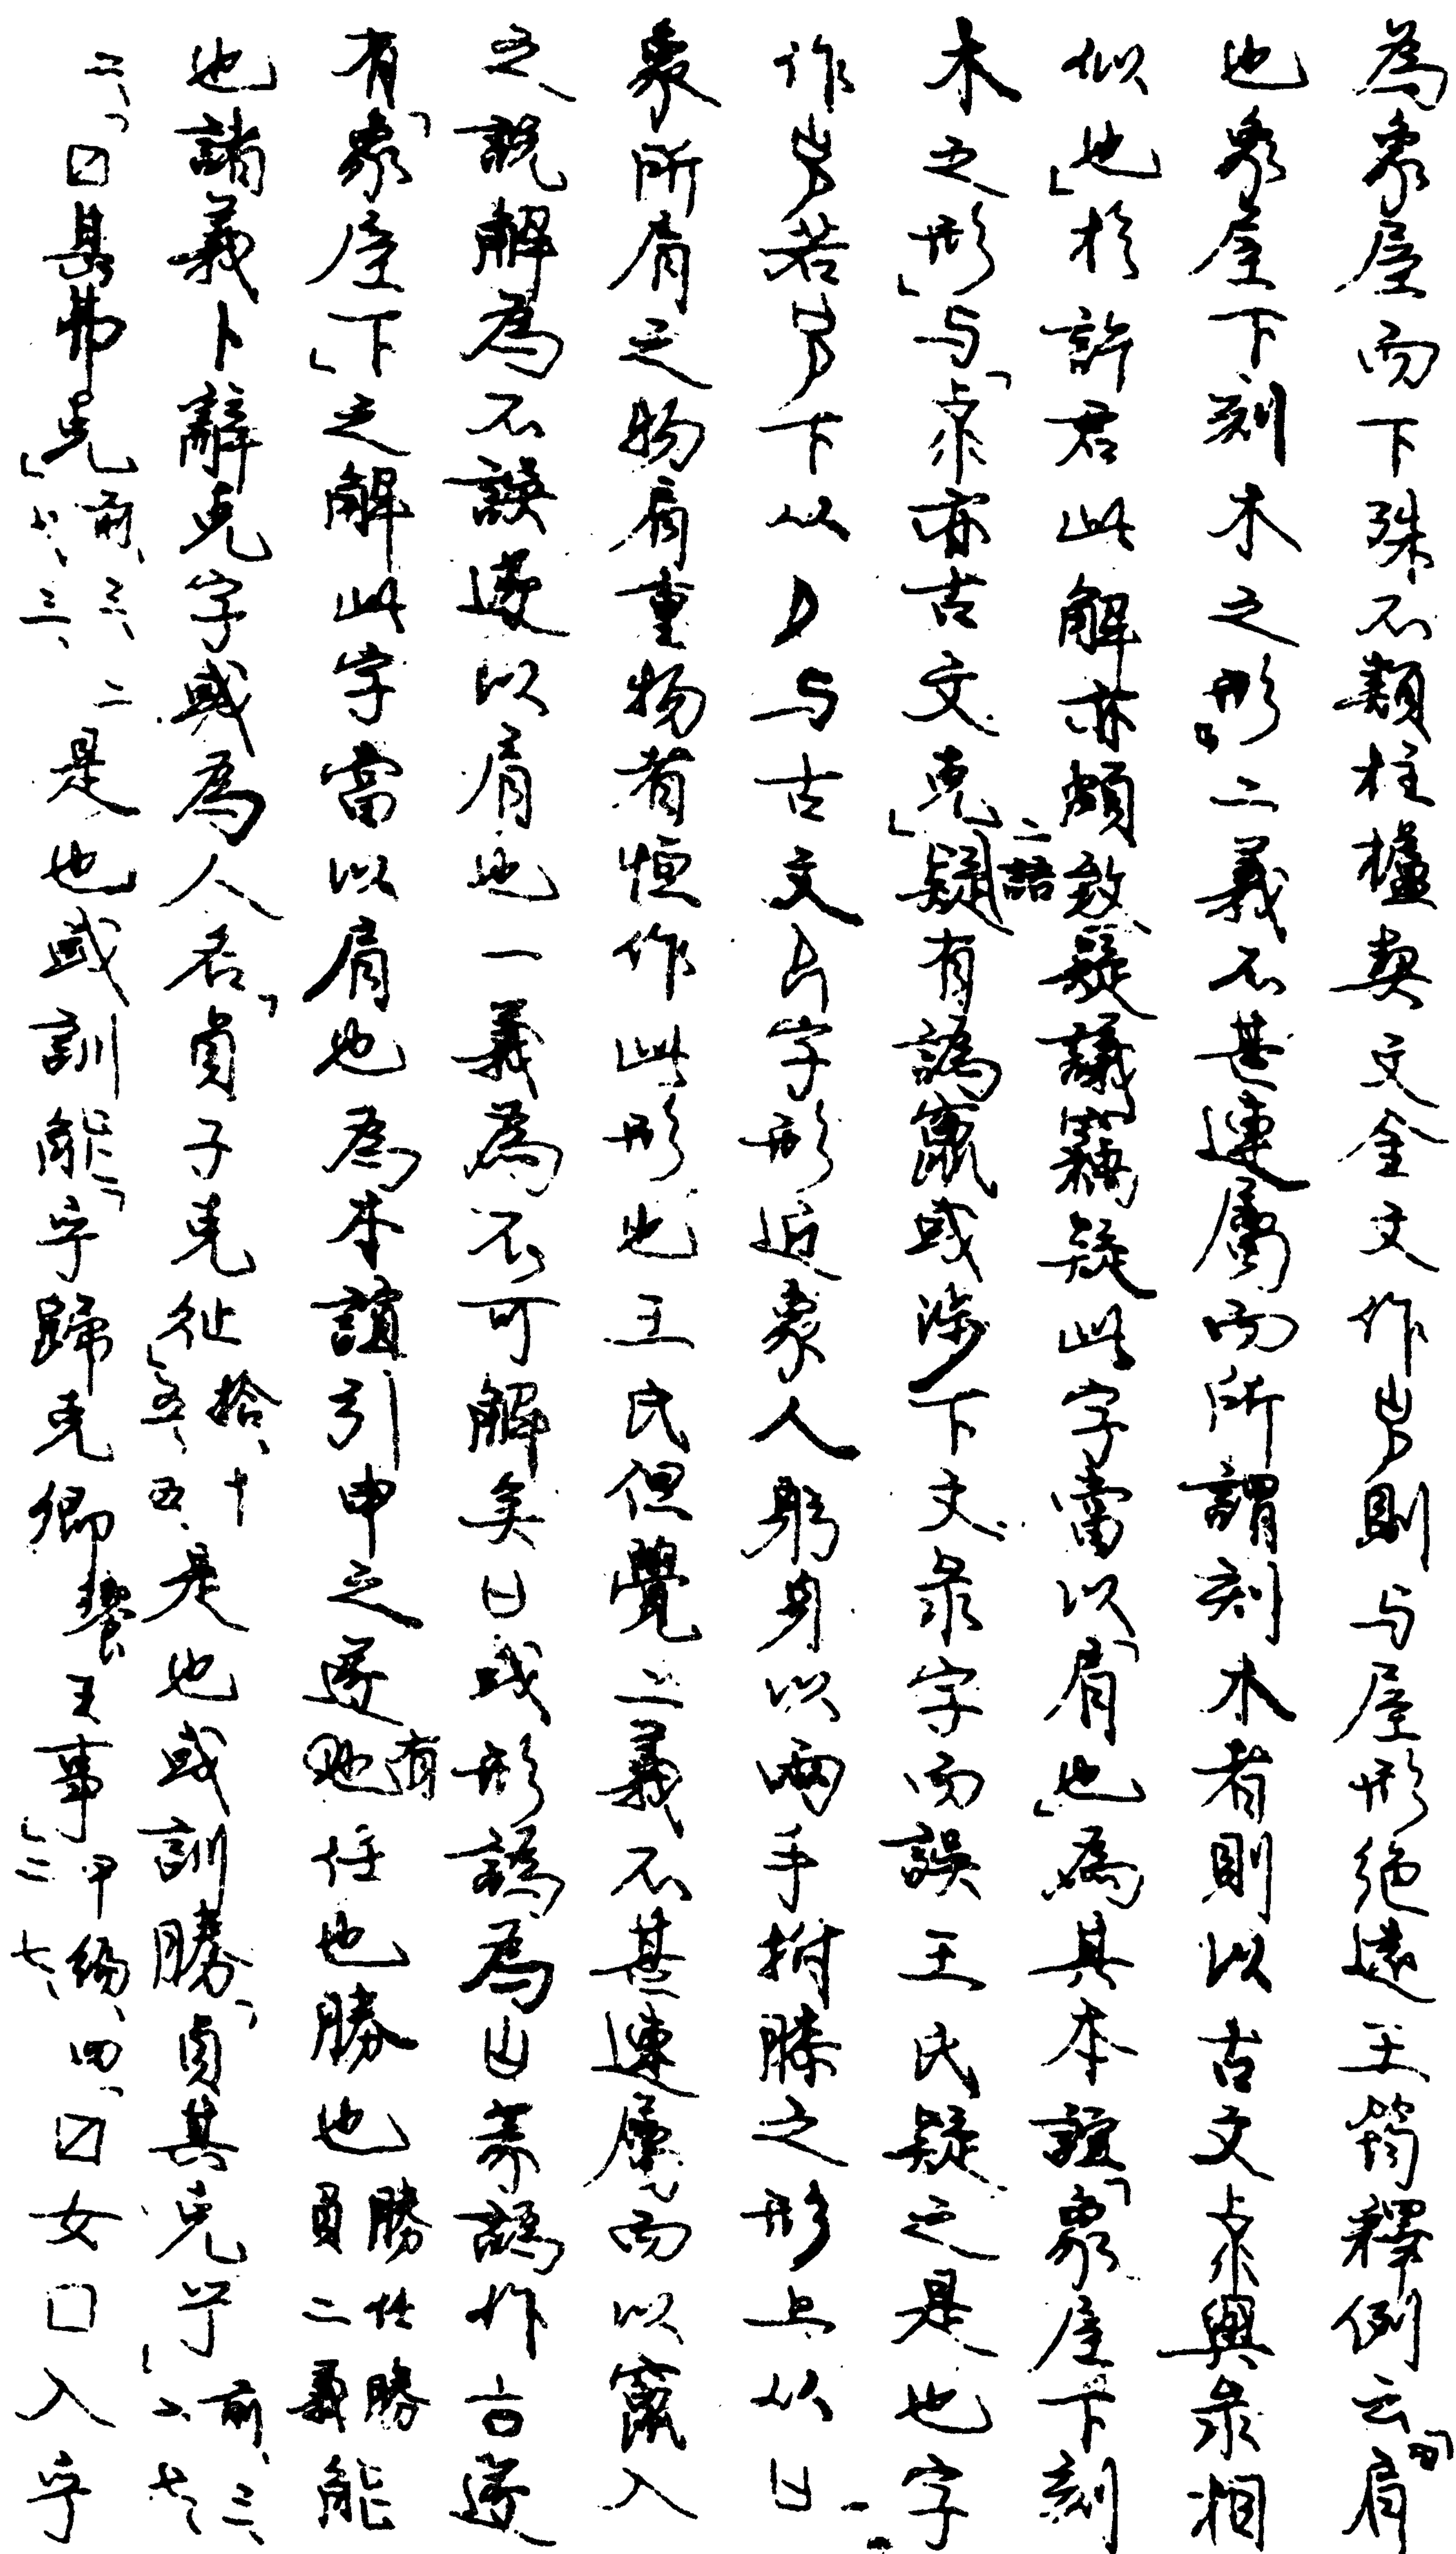 為象屋而下殊不類柱櫨契文金文作則与屋形絶遠王筠釋例云「曰肩
也象屋下刻木之形」二義不甚連屬而所謂刻木者則以古文與彔相
似也」於許君此解亦頗致疑議竊疑此字當以「肩也」為其本誼「象屋下刻
木之形」与「亦古文克」二語疑有譌竄或涉下文彔字而誤王氏疑之是也字
作若下从与古文字形近象人躬身以兩手拊膝之形上从
象所肩之物肩重物者恒作此形也王氏但覺二義不甚連屬而以竄入
之説解為不誤遂以肩也一義為不可解矣或形譌為譌作古遂
有「象屋下」之解此字當以肩也為本誼引申之遂有任也勝也勝任勝員二義能
也諸義卜辭克字或為人名「貞子克」拾、十五、五、是也或訓勝「貞其克」前、三、
二、「曰弗克」前、三、二是也或訓能「乎歸克鄉王事」甲編、四、二七、女囗入乎